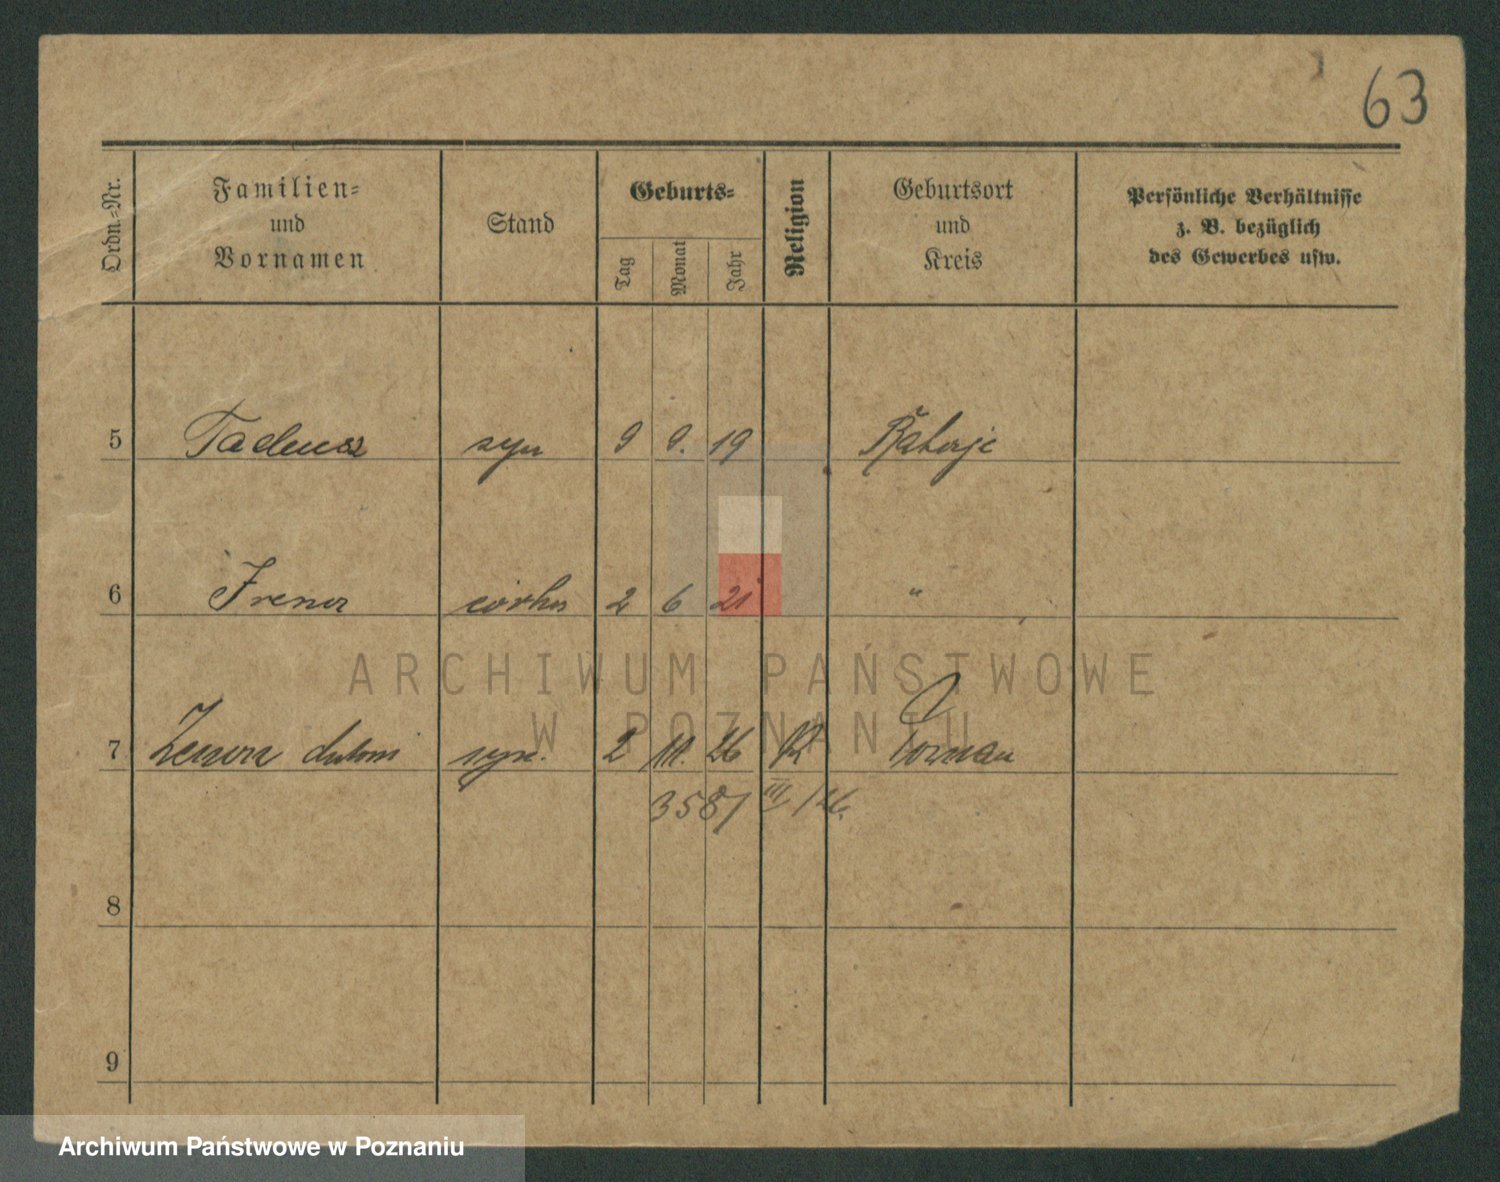 63
Ordn.-Nr.
Familien-
und
Vornamen
Stand
Geburts-
Tag
Monat
Jahr
Religion
Geburtsort
und
Kreis
Persönliche Verhältnisse
z. B. bezüglich
des Gewerbes usw.
5 Tadeusz syn 9 9. 19
6 Irena córka 2 6 21 "
ARCHIWUM PAŃSTWOWE
W POZNANIU
7 Zenon syn. 2 III. 26 K Poznan
3587 III/26.
8
9
Archiwum Państwowe w Poznaniu